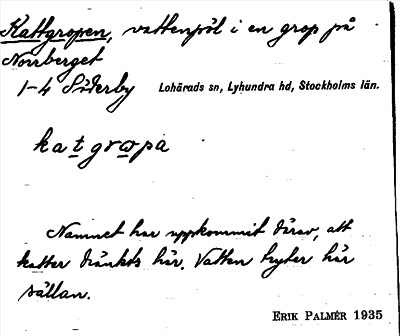 Kattgropen, vattenpöl i en grop på
Norrberget
1-4 Söderby Lohärads sn, Lyhundra hd, Stockholms län.
katgropa
Namnet har uppkommit därav, att
katter dränkts här. Vatten tryter här
sällan.
ERIK PALMÉR 1935